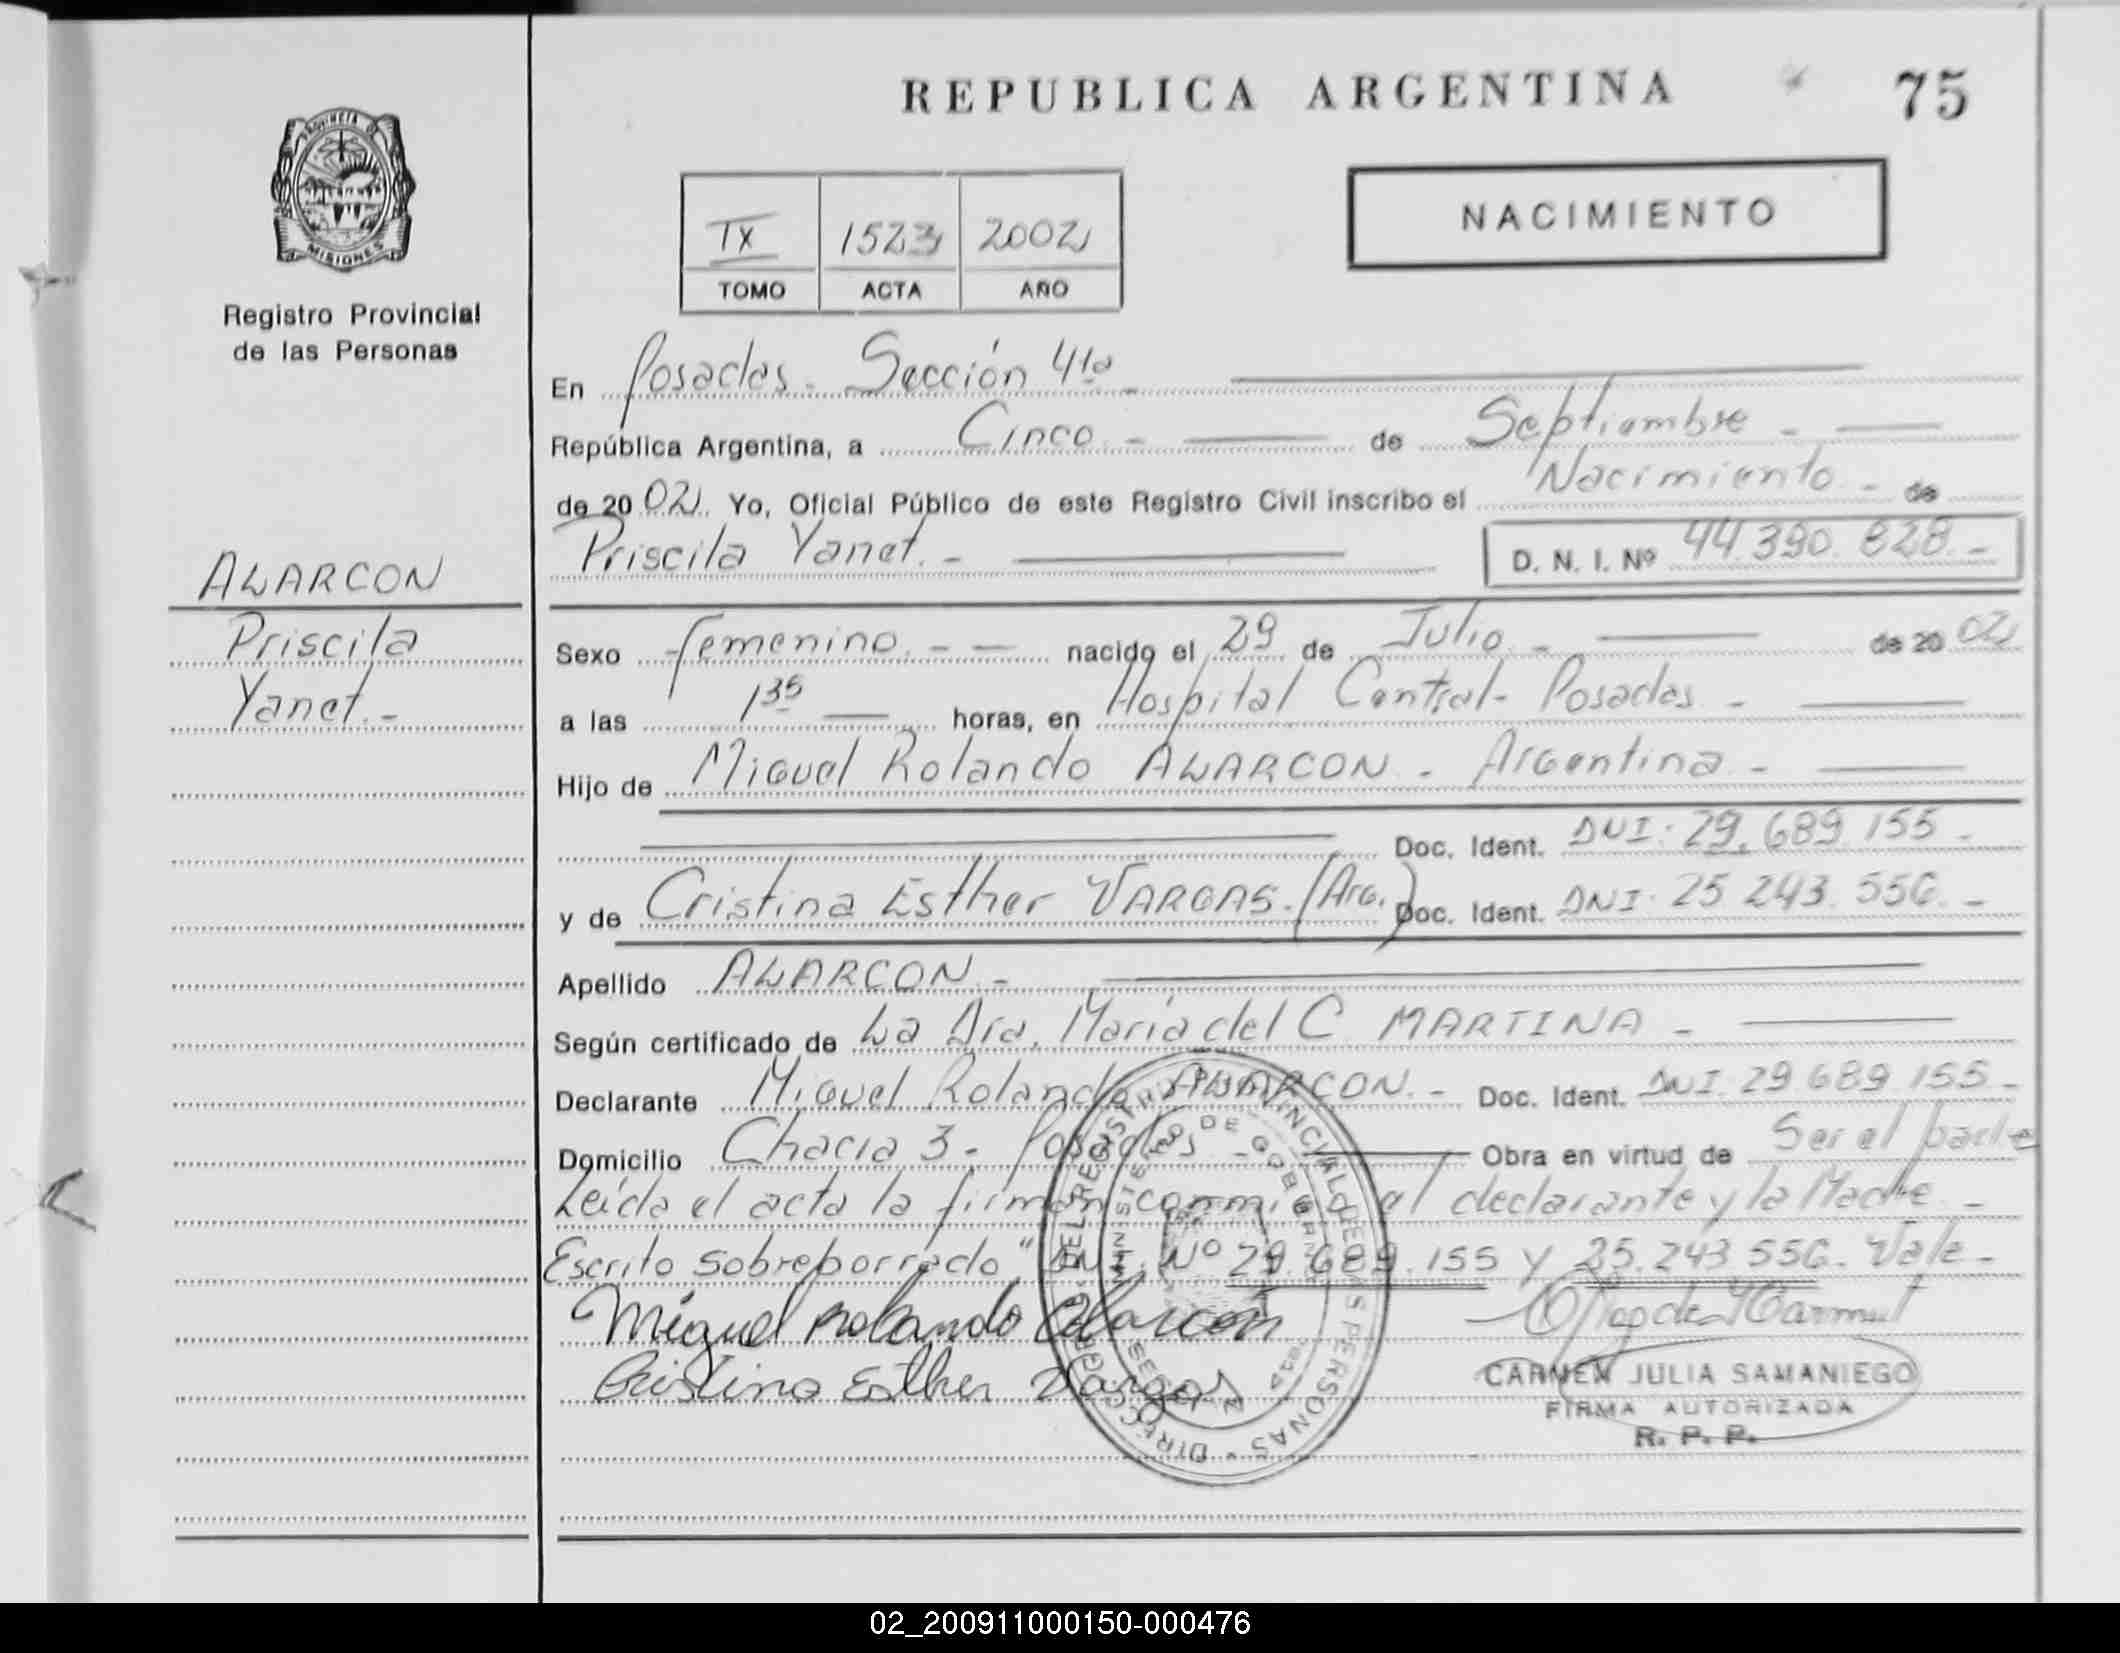 REPUBLICA ARGENTINA 75
PROVINCIA D
MISIONES
Registro Provincial
de las Personas
TX 1523 2002
TOMO ACTA AÑO
NACIMIENTO
En Posadas - Sección 4ta -
República Argentina, a Cinco - de Septiembre -
de 2002 Yo, Oficial Público de este Registro Civil inscribo el Nacimiento - de
Priscila Yanet. - D. N. I. Nº 44.390.828. -
ALARCON
Priscila
Yanet. -
Sexo femenino. - - nacido el 29 de Julio - de 2002
a las 1 35 horas, en Hospital Central - Posadas -
Hijo de Miguel Rolando ALARCON - Argentina -
Doc. Ident. DNI: 29.689.155 -
y de Cristina Esther VARGAS. (Arg.) Doc. Ident. DNI. 25 243.556. -
Apellido ALARCON -
Según certificado de La Dra. María del C. MARTINA -
Declarante Miguel Rolando ALARCON. - Doc. Ident. DNI. 29 689 155 -
Domicilio Chacra 3 - Posadas - Obra en virtud de Ser el padre
Leída el acta la firman conmigo el declarante y la Madre -
Escrito sobreborrado "DNI. Nº 29.689.155 y 25.243.556. Vale -
Miguel Rolando Alarcon
Cristina Esther Vargas
DIRECC. GRAL. DEL REGISTRO PROVINCIAL DE LAS PERSONAS
MINISTERIO DE GOBIERNO
CARMEN JULIA SAMANIEGO
FIRMA AUTORIZADA
R. P. P.
02_200911000150-000476